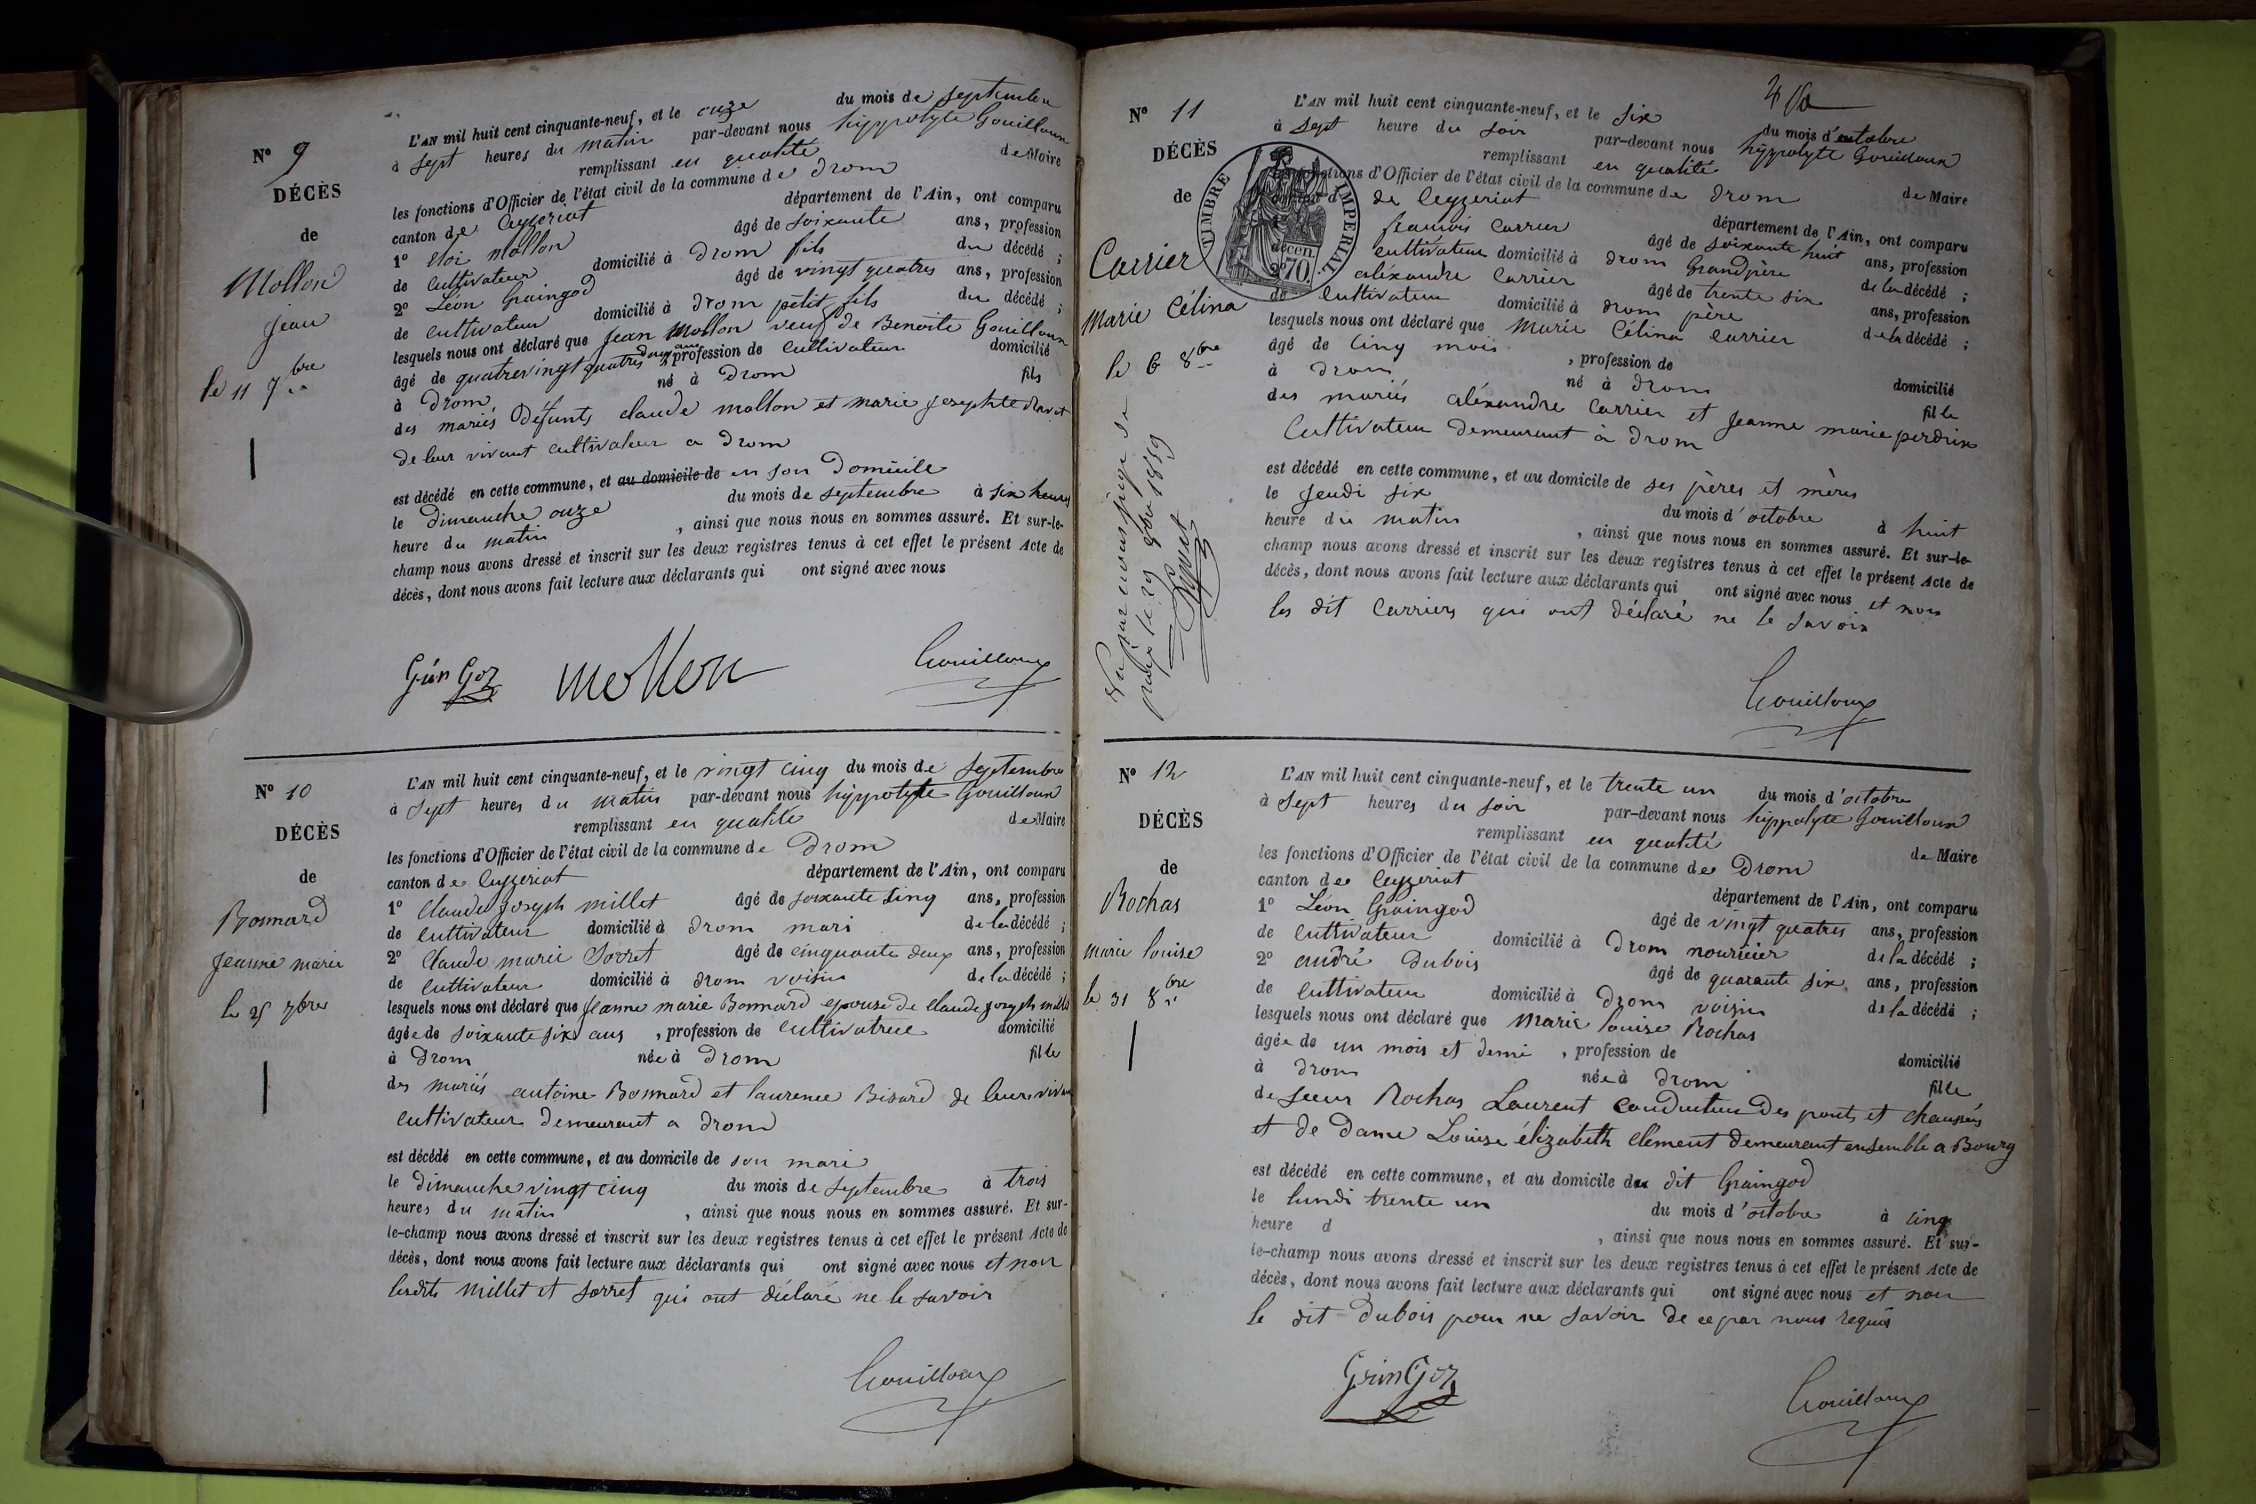 N° 9
DÉCÈS
de
Mollon
Jean
le 11 7bre
L'AN mil huit cent cinquante-neuf, et le onze du mois de septembre
à sept heures du matin par-devant nous hyppolyte Gouilloux
remplissant en qualité de Maire
les fonctions d'Officier de l'état civil de la commune de drom
canton de Ceyzeriat département de l'Ain, ont comparu
1° éloi mollon âgé de soixante ans, profession
de cultivateur domicilié à drom fils du décédé ;
2° Léon Graingod âgé de vingt quatres ans, profession
de cultivateur domicilié à drom petit fils du décédé ;
lesquels nous ont déclaré que Jean Mollon veuf de Benoite Gouilloux
âgé de quatrevingt quatres ans profession de cultivateur domicilié
à drom né à drom fils
des mariés défunts claude mollon et marie josephte
de leur vivant cultivateur a drom
est décédé en cette commune, et au domicile de en son domicile
le dimanche onze du mois de septembre à six heures
heure du matin , ainsi que nous nous en sommes assuré. Et sur-le-
champ nous avons dressé et inscrit sur les deux registres tenus à cet effet le présent Acte de
décès, dont nous avons fait lecture aux déclarants qui ont signé avec nous
GrinGoz mollon Gouilloux
N° 10
DÉCÈS
de
Bonnard
Jeanne marie
le 25 7bre
L'AN mil huit cent cinquante-neuf, et le vingt cinq du mois de septembre
à sept heures du matin par-devant nous hyppolyte Gouilloux
remplissant en qualité de Maire
les fonctions d'Officier de l'état civil de la commune de drom
canton de Ceyzeriat département de l'Ain, ont comparu
1° Claude joseph millet âgé de soixante cinq ans, profession
de cultivateur domicilié à drom mari de la décédé ;
2° Claude marie Sorret âgé de cinquante deux ans, profession
de cultivateur domicilié à drom voisin de la décédé ;
lesquels nous ont déclaré que Jeanne marie Bonnard epouse de Claude joseph millet
âgée de soixante six ans , profession de cultivatrice domicilié
à drom née à drom fille
des mariés antoine Bonnard et laurence Bisard de leurs vivant
cultivateur demeurant a drom
est décédé en cette commune, et au domicile de son mari
le dimanche vingt cinq du mois de septembre à trois
heures du matin , ainsi que nous nous en sommes assuré. Et sur-
le-champ nous avons dressé et inscrit sur les deux registres tenus à cet effet le présent Acte de
décès, dont nous avons fait lecture aux déclarants qui ont signé avec nous et non
lesdits millet et sorret qui ont déclaré ne le savoir
Gouilloux
N° 11
DÉCÈS
de
Carrier
marie Célina
le 6 8bre
TIMBRE IMPERIAL
70
L'AN mil huit cent cinquante-neuf, et le six du mois d'octobre
à sept heure du soir par-devant nous hyppolyte Gouilloux
remplissant en qualité de Maire
fonctions d'Officier de l'état civil de la commune de drom
de Ceyzeriat département de l'Ain, ont comparu
françois Carrier âgé de soixante huit ans, profession
cultivateur domicilié à drom Grandpère de la décédé ;
2° aléxandre Carrier âgé de trente six ans, profession
de cultivateur domicilié à drom père de la décédé ;
lesquels nous ont déclaré que Marie Célina Carrier
âgé de cinq mois , profession de domicilié
à drom né à drom fille
des mariés aléxandre Carrier et Jeanne marie perdrix
Cultivateur demeurant à drom
est décédé en cette commune, et au domicile de ses pères et mères
le jeudi six du mois d'octobre à huit
heure du matin , ainsi que nous nous en sommes assuré. Et sur-le-
champ nous avons dressé et inscrit sur les deux registres tenus à cet effet le présent Acte de
décès, dont nous avons fait lecture aux déclarants qui ont signé avec nous et non
les dit Carriers qui ont déclaré ne le savoir
Gouilloux
Vu par nous juge de
paix le 29 9bre 1859
N° 12
DÉCÈS
de
Rochas
marie louise
le 31 8bre
L'AN mil huit cent cinquante-neuf, et le trente un du mois d'octobre
à sept heures du soir par-devant nous hyppolyte Gouilloux
remplissant en qualité de Maire
les fonctions d'Officier de l'état civil de la commune de drom
canton de Ceyzeriat département de l'Ain, ont comparu
1° Léon Graingod âgé de vingt quatres ans, profession
de cultivateur domicilié à drom nourricier de la décédé ;
2° andré Dubois âgé de quarante six ans, profession
de cultivateur domicilié à drom voisin de la décédé ;
lesquels nous ont déclaré que Marie louise Rochas
âgée de un mois et demi , profession de domicilié
à drom née à drom fille
de sieur Rochas Laurent conducteur des ponts et chaussées
et de dame Louise élizabeth Clément demeurant ensemble a Bourg
est décédé en cette commune, et au domicile du dit Graingod
le lundi trente un du mois d'octobre à cinq
heure d , ainsi que nous nous en sommes assuré. Et sur-
le-champ nous avons dressé et inscrit sur les deux registres tenus à cet effet le présent Acte de
décès, dont nous avons fait lecture aux déclarants qui ont signé avec nous et non
le dit Dubois pour ne savoir de ce par nous requis
GrinGoz Gouilloux